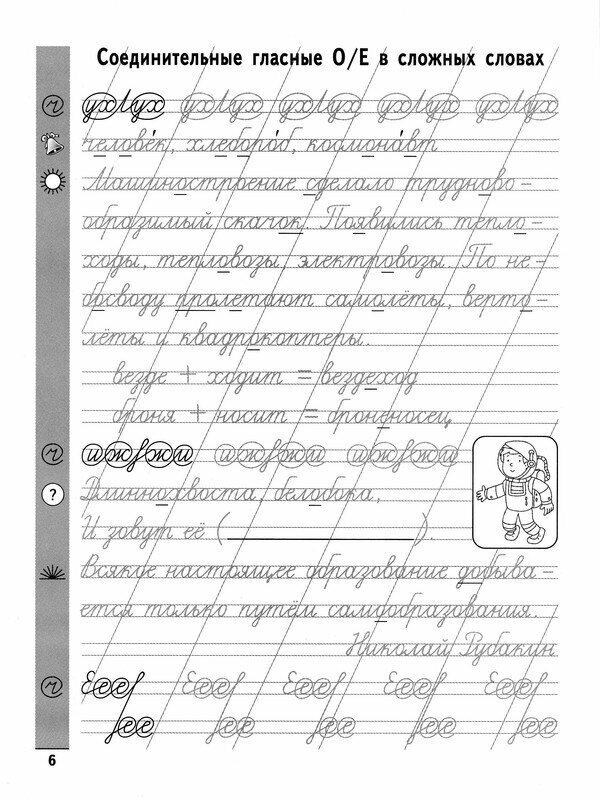 Соединительные гласные О/Е в сложных словах
человек, хлебороб, космонавт
Машиностроение сделало трудново-
образимый скачок. Появились тепло-
ходы, тепловозы, электровозы. По не-
босводу пролетают самолёты, верто-
лёты и квадрокоптеры.
везде + ходит = вездеход
броня + носит = броненосец
?
Длиннохвоста, белобока,
И зовут её (          ).
Всякое настоящее образование добыва-
ется только путём самообразования.
Николай Рубакин
6